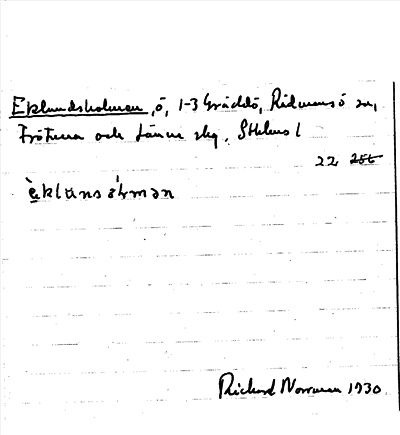 Eklundsholmen, ö, 1-3 Gräddö, Rådmansö sn,
Frötuna och Länna skg, Sthlms l
22 256
èklunsålman
Richard Norrman 1930